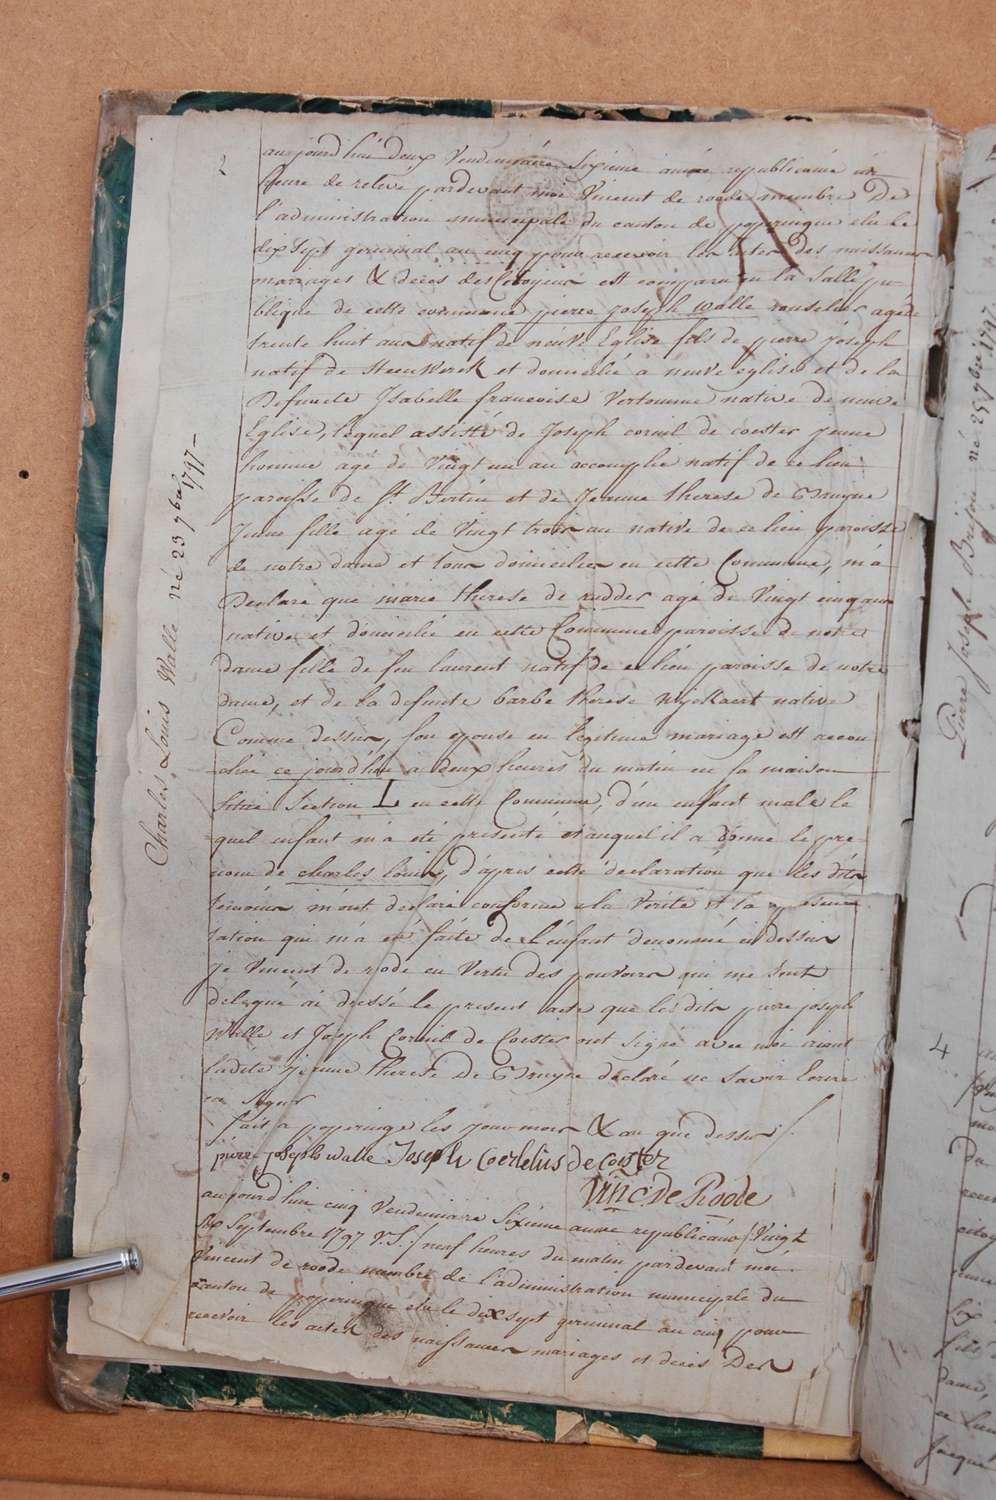 2
aujourd'hui deux Vendemiaire Sixieme année republicaine
heure de releve pardevant moi Vincent de roode membre De
l'administration municipale du canton de poperingue elu le
dix sept germinal an cinq pour recevoir les actes des naissances
mariages & décès des Citoyens est comparu en la Salle pu-
blique de cette commune pierre joseph walle agé de
trente huit ans natif de neuve Eglise fils de pierre joseph
natif de Steenkerck et domicilié à neuve église et de la
Defuncte Isabelle francoise Vertomme native de neuve
Eglise, lequel assisté de Joseph corneil de coester jeune
homme agé de Vingt un an accomplie natif de ce lieu
paroisse de St. Bertin et de Jeanne therese de Bruyne
Jeune fille agé de Vingt trois an native de ce lieu paroisse
de notre dame et tous domiciliés en cette Commune, m'a
Declaré que marie therese de ridder agé de Vingt cinq ans
native et domicilié en cette Commune paroisse de notre
dame fille de feu laurent natif de ce lieu paroisse de notre
dame, et de la defunte barbe therese native
Comme dessus, son epouse en legitime mariage est accou
chée ce jourd'hui a deux heures du matin en sa maison
Section L en cette Commune, d'un enfant male le
quel enfant m'a été presenté et auquel il a donné le pre-
nom de charles louis, d'apres cette declaration que les dits
témoins m'ont declaré conforme a la Vérité et la présen
tation qui m'a été faite de l'enfant denommé ci dessus
je Vincent de rode en Vertu des pouvoirs qui me sont
delegué ai dressé le present acte que les dits pierre joseph
Walle et Joseph Corneil de Coester ont signé avec moi aiant
ladite jeanne therese de Bruyne declaré ne savoir Ecrire
ni signer
fait a poperinge les jour mois & an que dessus /.
pierre joseph walle Joseph Coernelius de Coester
Vinc. de Roode
aujourd'hui cinq Vendemiaire Sixieme année republicaine / Vingt
Six Septembre 1797 V.S. / neuf heures du matin pardevant moi
Vincent de roode membre de l'administration municipale du
Canton de poperingue elu le dix sept germinal an cinq pour
recevoir les actes des naissances mariages et décès Des
Charles Louis Walle né 23 7bre 1797
Pierre Joseph né 25 7bre 1797
4